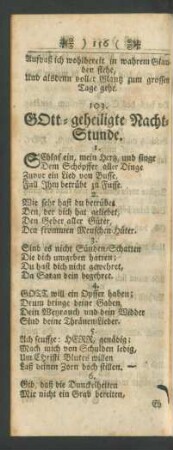 156
Aufdaß ich wohlbereit in wahrem Glau-
ben stehe,
Und alsdenn voller Glantz zum grossen
Tage gehe.
103.
GOtt-geheiligte Nacht-
Stunde.
1.
Schlaf ein, mein Hertz, und singe
Dem Schöpffer aller Dinge
Zuvor ein Lied von Busse,
Fall Ihm betrübt zu Fusse.
2.
Wie sehr hast du betrübet
Den, der dich hat geliebet,
Den Geber aller Güter,
Den frommen Menschen-Hüter.
3.
Sind es nicht Sünden-Schatten
Die dich umgeben hatten;
Du hast dich nicht gewehret,
Da Satan dein begehret.
4.
GOTT will ein Opffer haben;
Drum bringe deine Gaben,
Dein Weyrauch und dein Widder
Sind deine Thränen-Lieder.
5.
Ach seufftze: HERR, genädig:
Mach mich von Schulden ledig,
Um Christi Blutes willen
Laß deinen Zorn doch stillen.
6.
Gib, daß die Dunckelheiten
Mir nicht ein Grab bereiten,